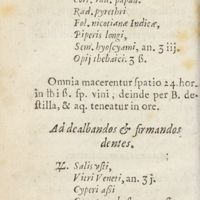 Rad. pyrethri
Fol. nicotianæ Indicæ,
Piperis longi,
Sem. hyoscyami, an. ʒ iij.
Opij thebaici. ʒ ß.
Omnia macerentur spatio 24. hor.
in lbi ß. sp. vini, deinde per B. de-
stilla, & aq. teneatur in ore.
Ad dealbandos & firmandos
dentes.
℞. Salis vsti,
Vitri Veneti, an. ʒ j.
Cyperi assi